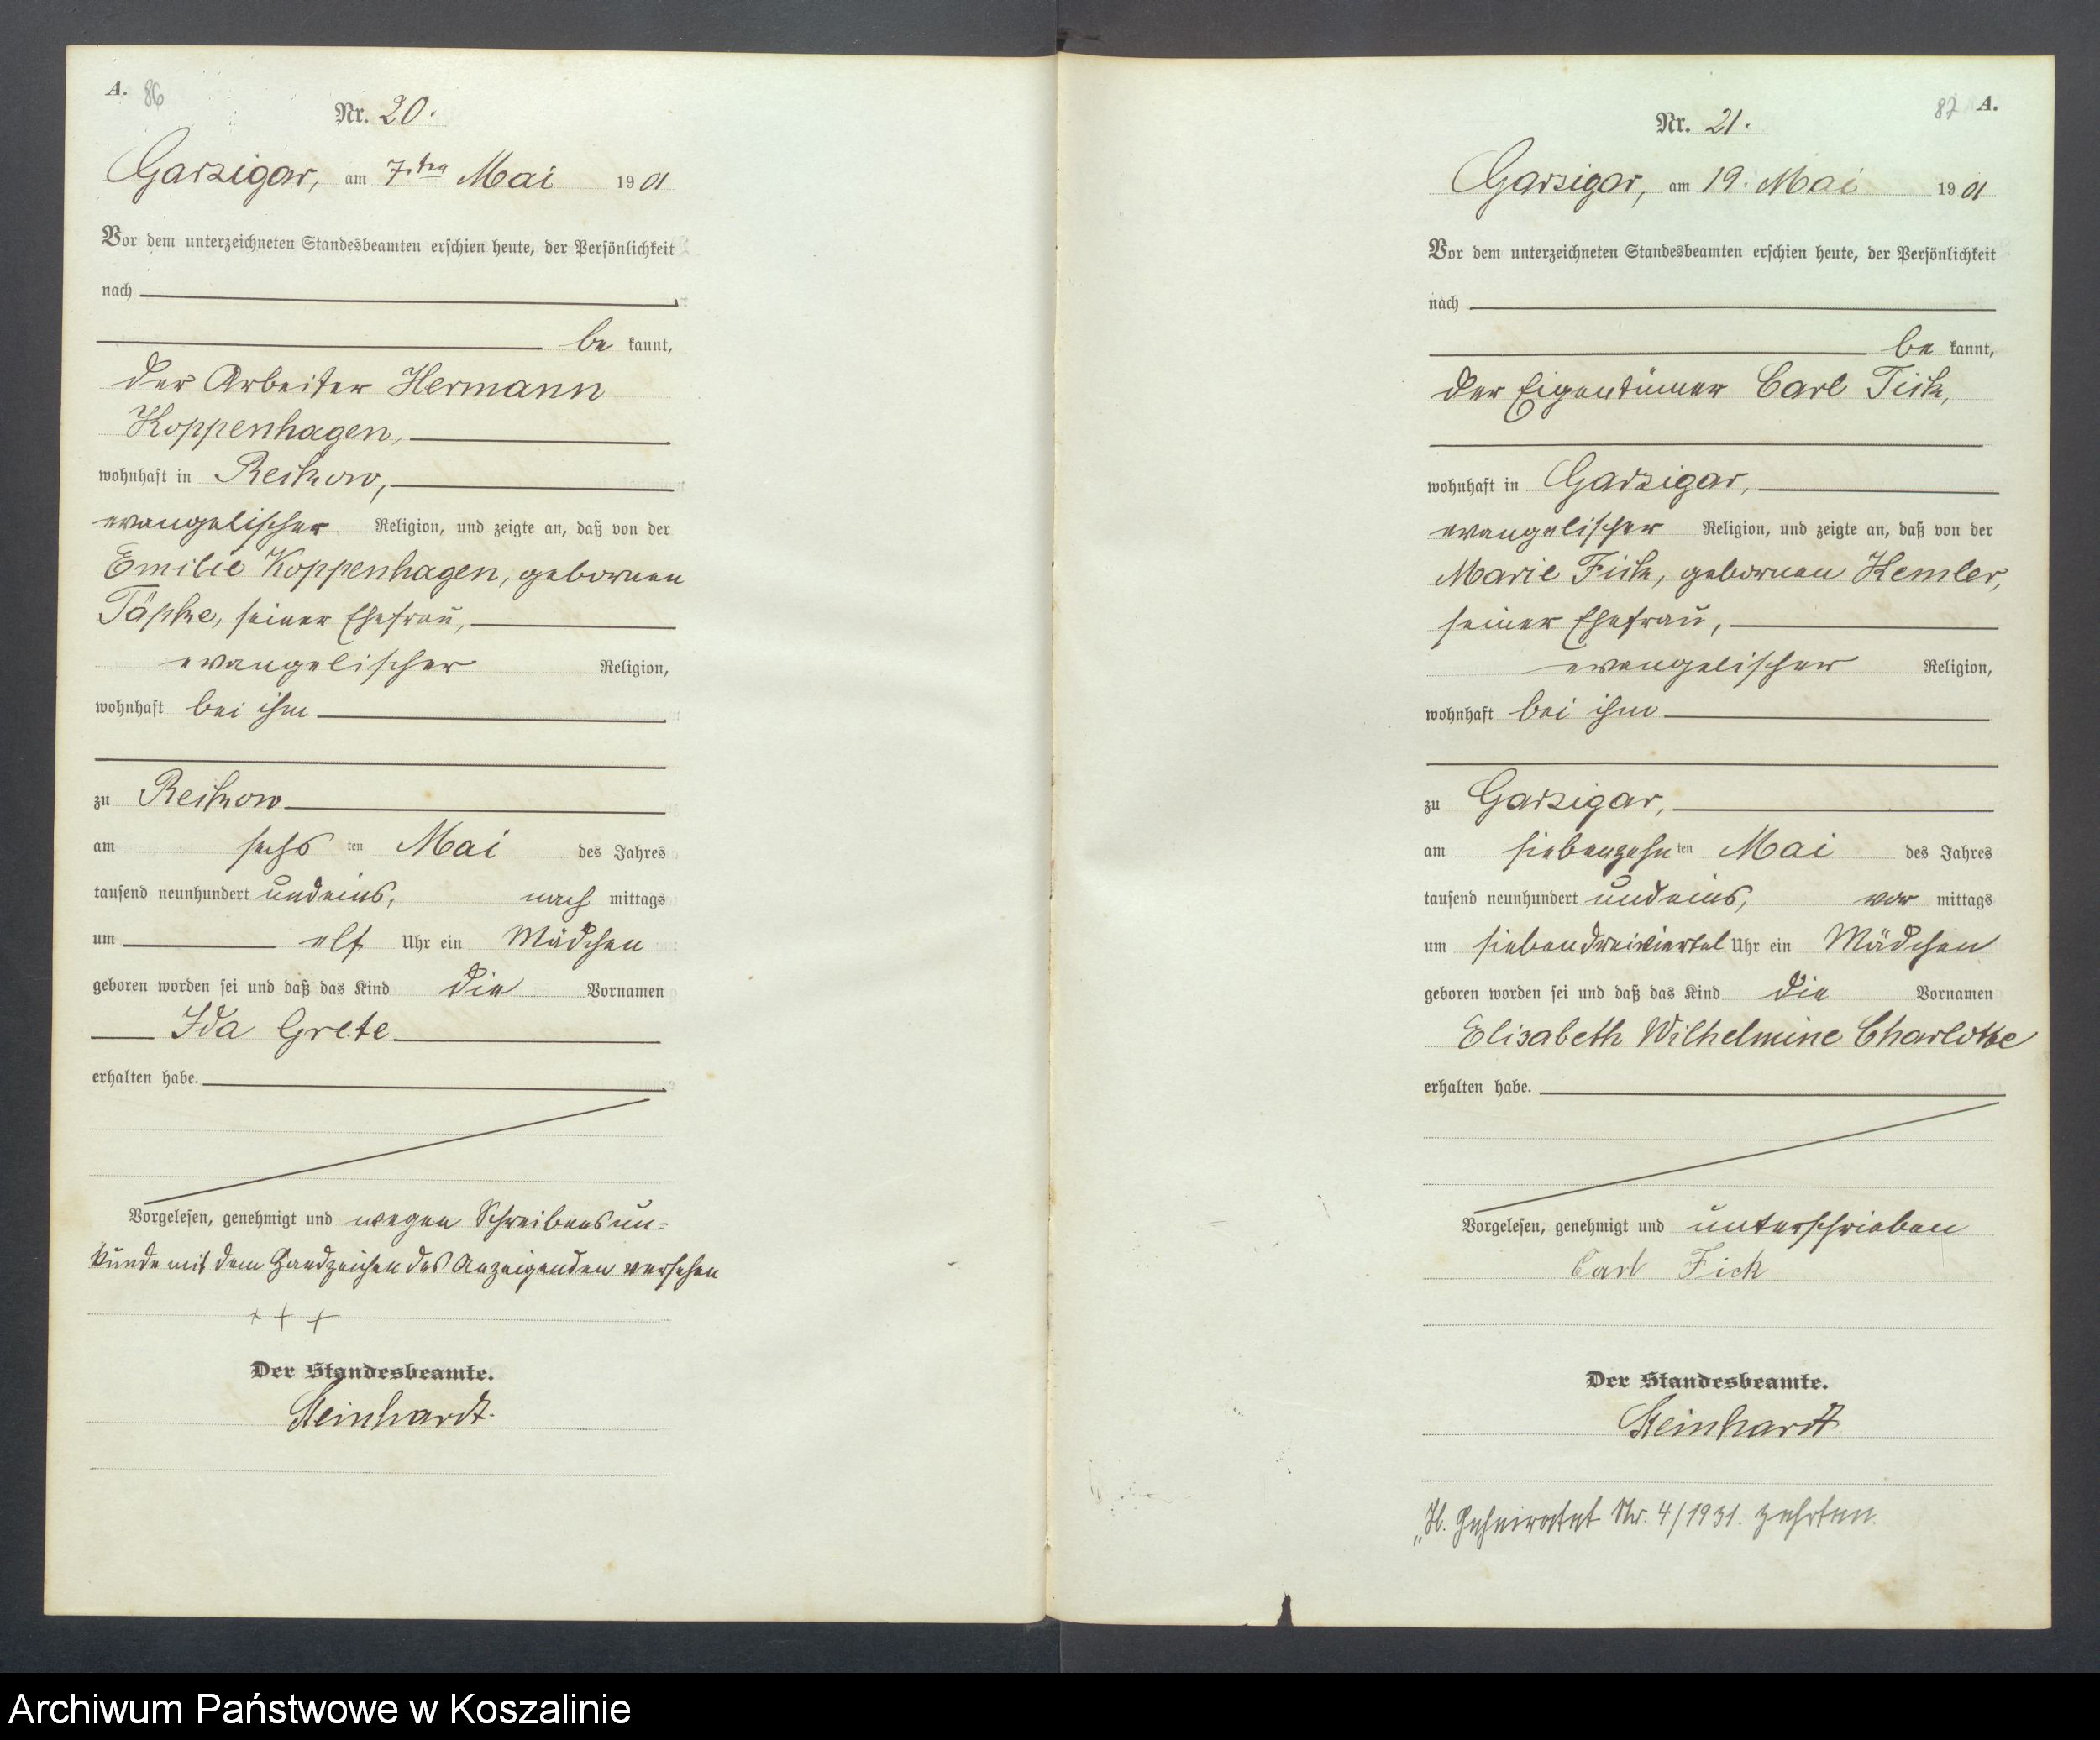 A. 86
Nr. 20.
Garzigar, am 7.ten Mai 1901
Vor dem unterzeichneten Standesbeamten erschien heute, der Persönlichkeit
nach
be kannt,
der Arbeiter Hermann
Koppenhagen,
wohnhaft in Reckow,
evangelischer Religion, und zeigte an, daß von der
Emilie Koppenhagen, geborenen
seiner Ehefrau,
evangelischer Religion,
wohnhaft bei ihm
zu Reckow
am sechs ten Mai des Jahres
tausend neunhundert undeins, nach mittags
um elf Uhr ein Mädchen
geboren worden sei und daß das Kind die Vornamen
Ida Grete
erhalten habe.
Vorgelesen, genehmigt und wegen Schreibensun=
kunde mit dem Handzeichen des Anzeigenden versehen
+ + +
Der Standesbeamte.
Steinhardt.
87 A.
Nr. 21.
Garzigar, am 19. Mai 1901
Vor dem unterzeichneten Standesbeamten erschien heute, der Persönlichkeit
nach
be kannt,
der Eigentümer Carl Fick,
wohnhaft in Garzigar,
evangelischer Religion, und zeigte an, daß von der
Marie Fick, geborenen Kemler,
seiner Ehefrau,
evangelischer Religion,
wohnhaft bei ihm
zu Garzigar,
am siebenzehn ten Mai des Jahres
tausend neunhundert undeins, vor mittags
um siebendreiviertel Uhr ein Mädchen
geboren worden sei und daß das Kind die Vornamen
Elisabeth Wilhelmine Charlotte
erhalten habe.
Vorgelesen, genehmigt und unterschrieben
Carl Fick
Der Standesbeamte.
Steinhardt
Geheiratet Nr. 4/1931.
Archiwum Państwowe w Koszalinie